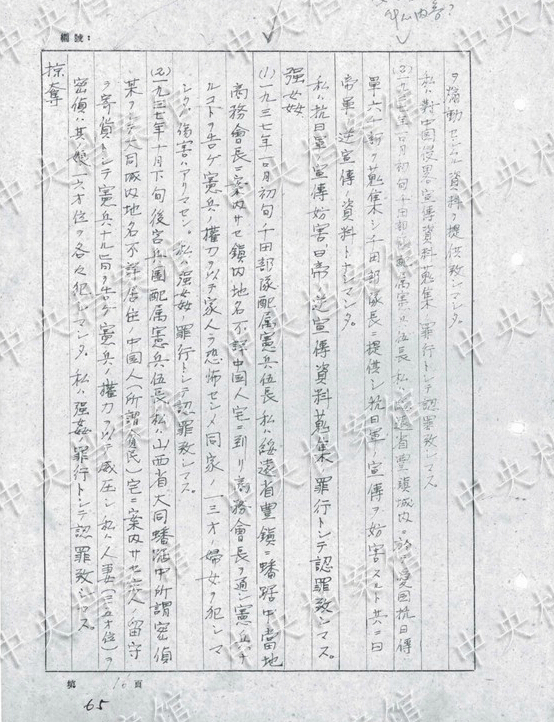 中心内容?
欄號:
ヲ煽動セシムル資料ヲ提供致シマシタ。
私ハ對中国侵畧宣傳資料蒐集ノ罪行トシテ認罪致シマス
(2)一九三七年一〇月初旬千田部隊配属憲兵伍長私ハ綏遠省豊鎮城内ニ於テ愛国抗日傳
單六一新ヲ蒐集シ千田部隊長ニ提供シ抗日軍ノ宣傳ヲ妨害スルト共ニ日
帝軍ノ逆宣傳ノ資料トナシマシタ。
私ハ抗日軍ノ宣傳妨害、日帝ノ逆宣傳資料蒐集ノ罪行トシテ認罪致シマス。
强姦
(1)一九三七年一〇月初旬千田部隊配属憲兵伍長私ハ綏遠省豊鎮ニ蟠踞中當地
商務會長ニ案内サセ鎮内地名不詳中国人宅ニ到リ商務會長ヲ通シ憲兵ナ
ルコトヲ告ゲ憲兵ノ權力ヲ以テ家人ヲ恐怖センメ同家ノ 三才ノ婦女ヲ犯シマ
シタガ傷害ハアリマセン。私ハ强姦ノ罪行トシテ認罪致シマス。
(2)一九三七年十月下旬後宮兵團配属憲兵伍長私ハ山西省大同ニ蟠踞中所謂密偵
某ヲシテ大同城内地名不詳居住ノ中国人(所謂 民)宅ニ案内サセ主人ノ留守
ヲ密偵トシテ憲兵ナル旨ヲ告ゲ憲兵ノ權力ヲ以テ威圧シ私ハ人妻(三五才位)ヲ
密偵ハ其ノ娘一六才位ヲ各々犯シマシタ。私ハ强姦ノ罪行トシテ認罪致シマス。
掠奪
第 16 頁
65
中央档案馆